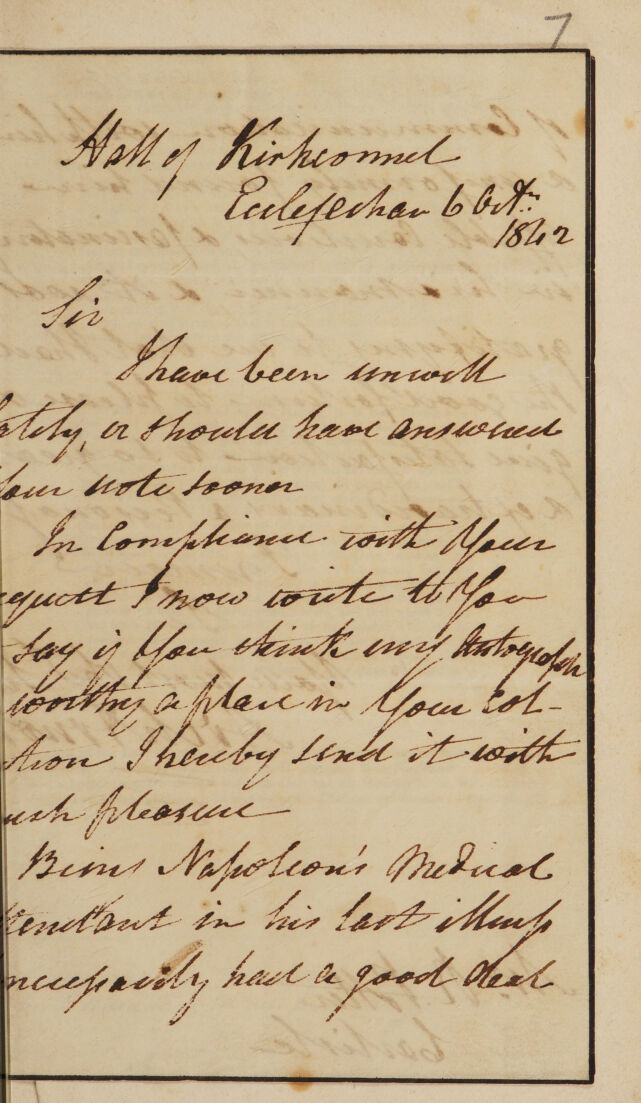 7
Hall of Kirkconnel
Ecclefechan 6 Octr.
1842
Sir
I have been unwell
ately, or should have answered
our note sooner
In Compliance with Your
equest I now write to You
say if You think my Autograph
worthy a place in Your col-
tion I hereby send it with
uch pleasure
Being Napoleon's Medical
tendant in his last illness
necessarily had a good deal